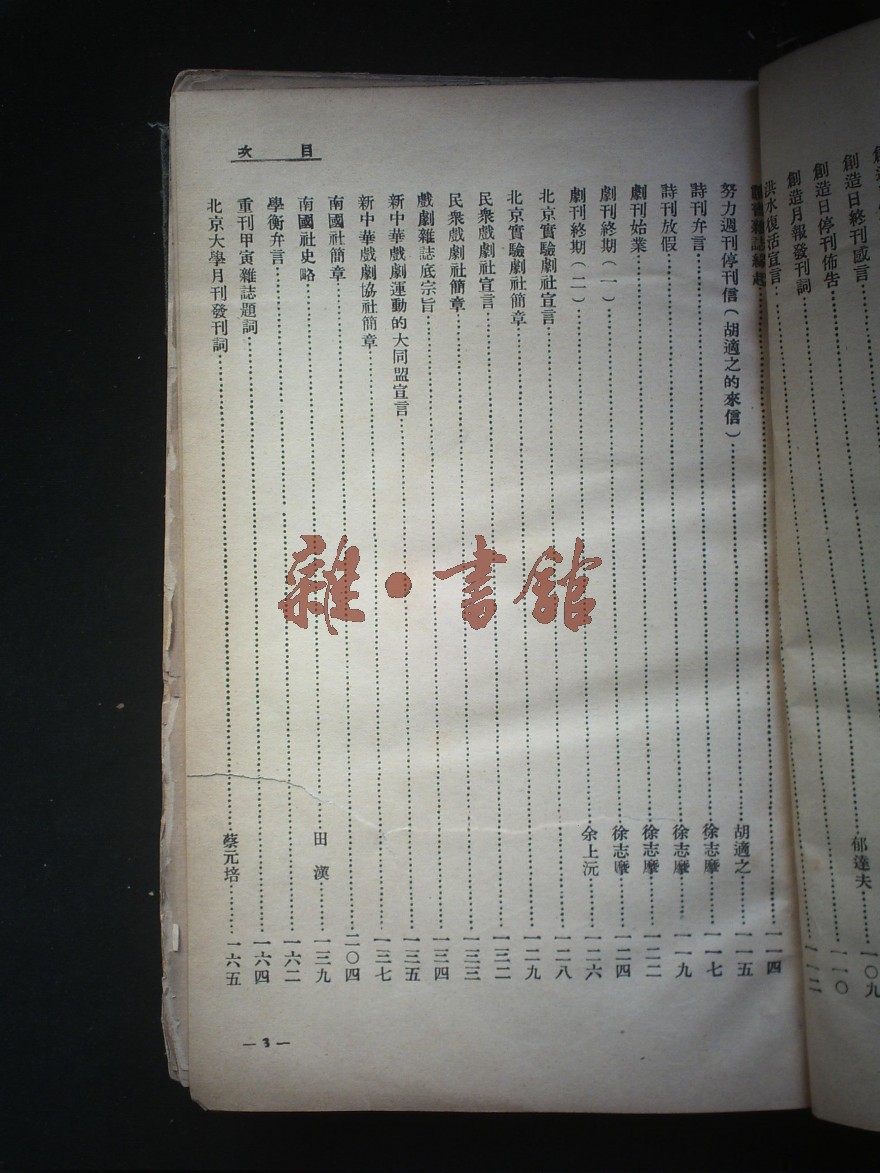 創造日終刊感言 郁達夫 一〇九
創造日停刊佈告 一一〇
創造月報發刊詞 一一二
洪水復活宣言
雜誌緣起 一一四
目次
努力週刊停刊信（胡適之的來信） 胡適之 一一五
詩刊弁言 徐志摩 一一七
詩刊放假 徐志摩 一一九
劇刊始業 徐志摩 一二二
劇刊終期（一） 徐志摩 一二四
劇刊終期（二） 余上沅 一二六
北京實驗劇社宣言 一二八
北京實驗劇社簡章 一二九
民衆戲劇社宣言 一三二
民衆戲劇社簡章 一三三
戲劇雜誌底宗旨 一三四
新中華戲劇運動的大同盟宣言 一三五
新中華戲劇協社簡章 一三七
南國社簡章 二〇四
南國社史略 田漢 一三九
學衡弁言 一六二
重刊甲寅雜誌題詞 一六四
北京大學月刊發刊詞 蔡元培 一六五
— 3 —
雜·書館